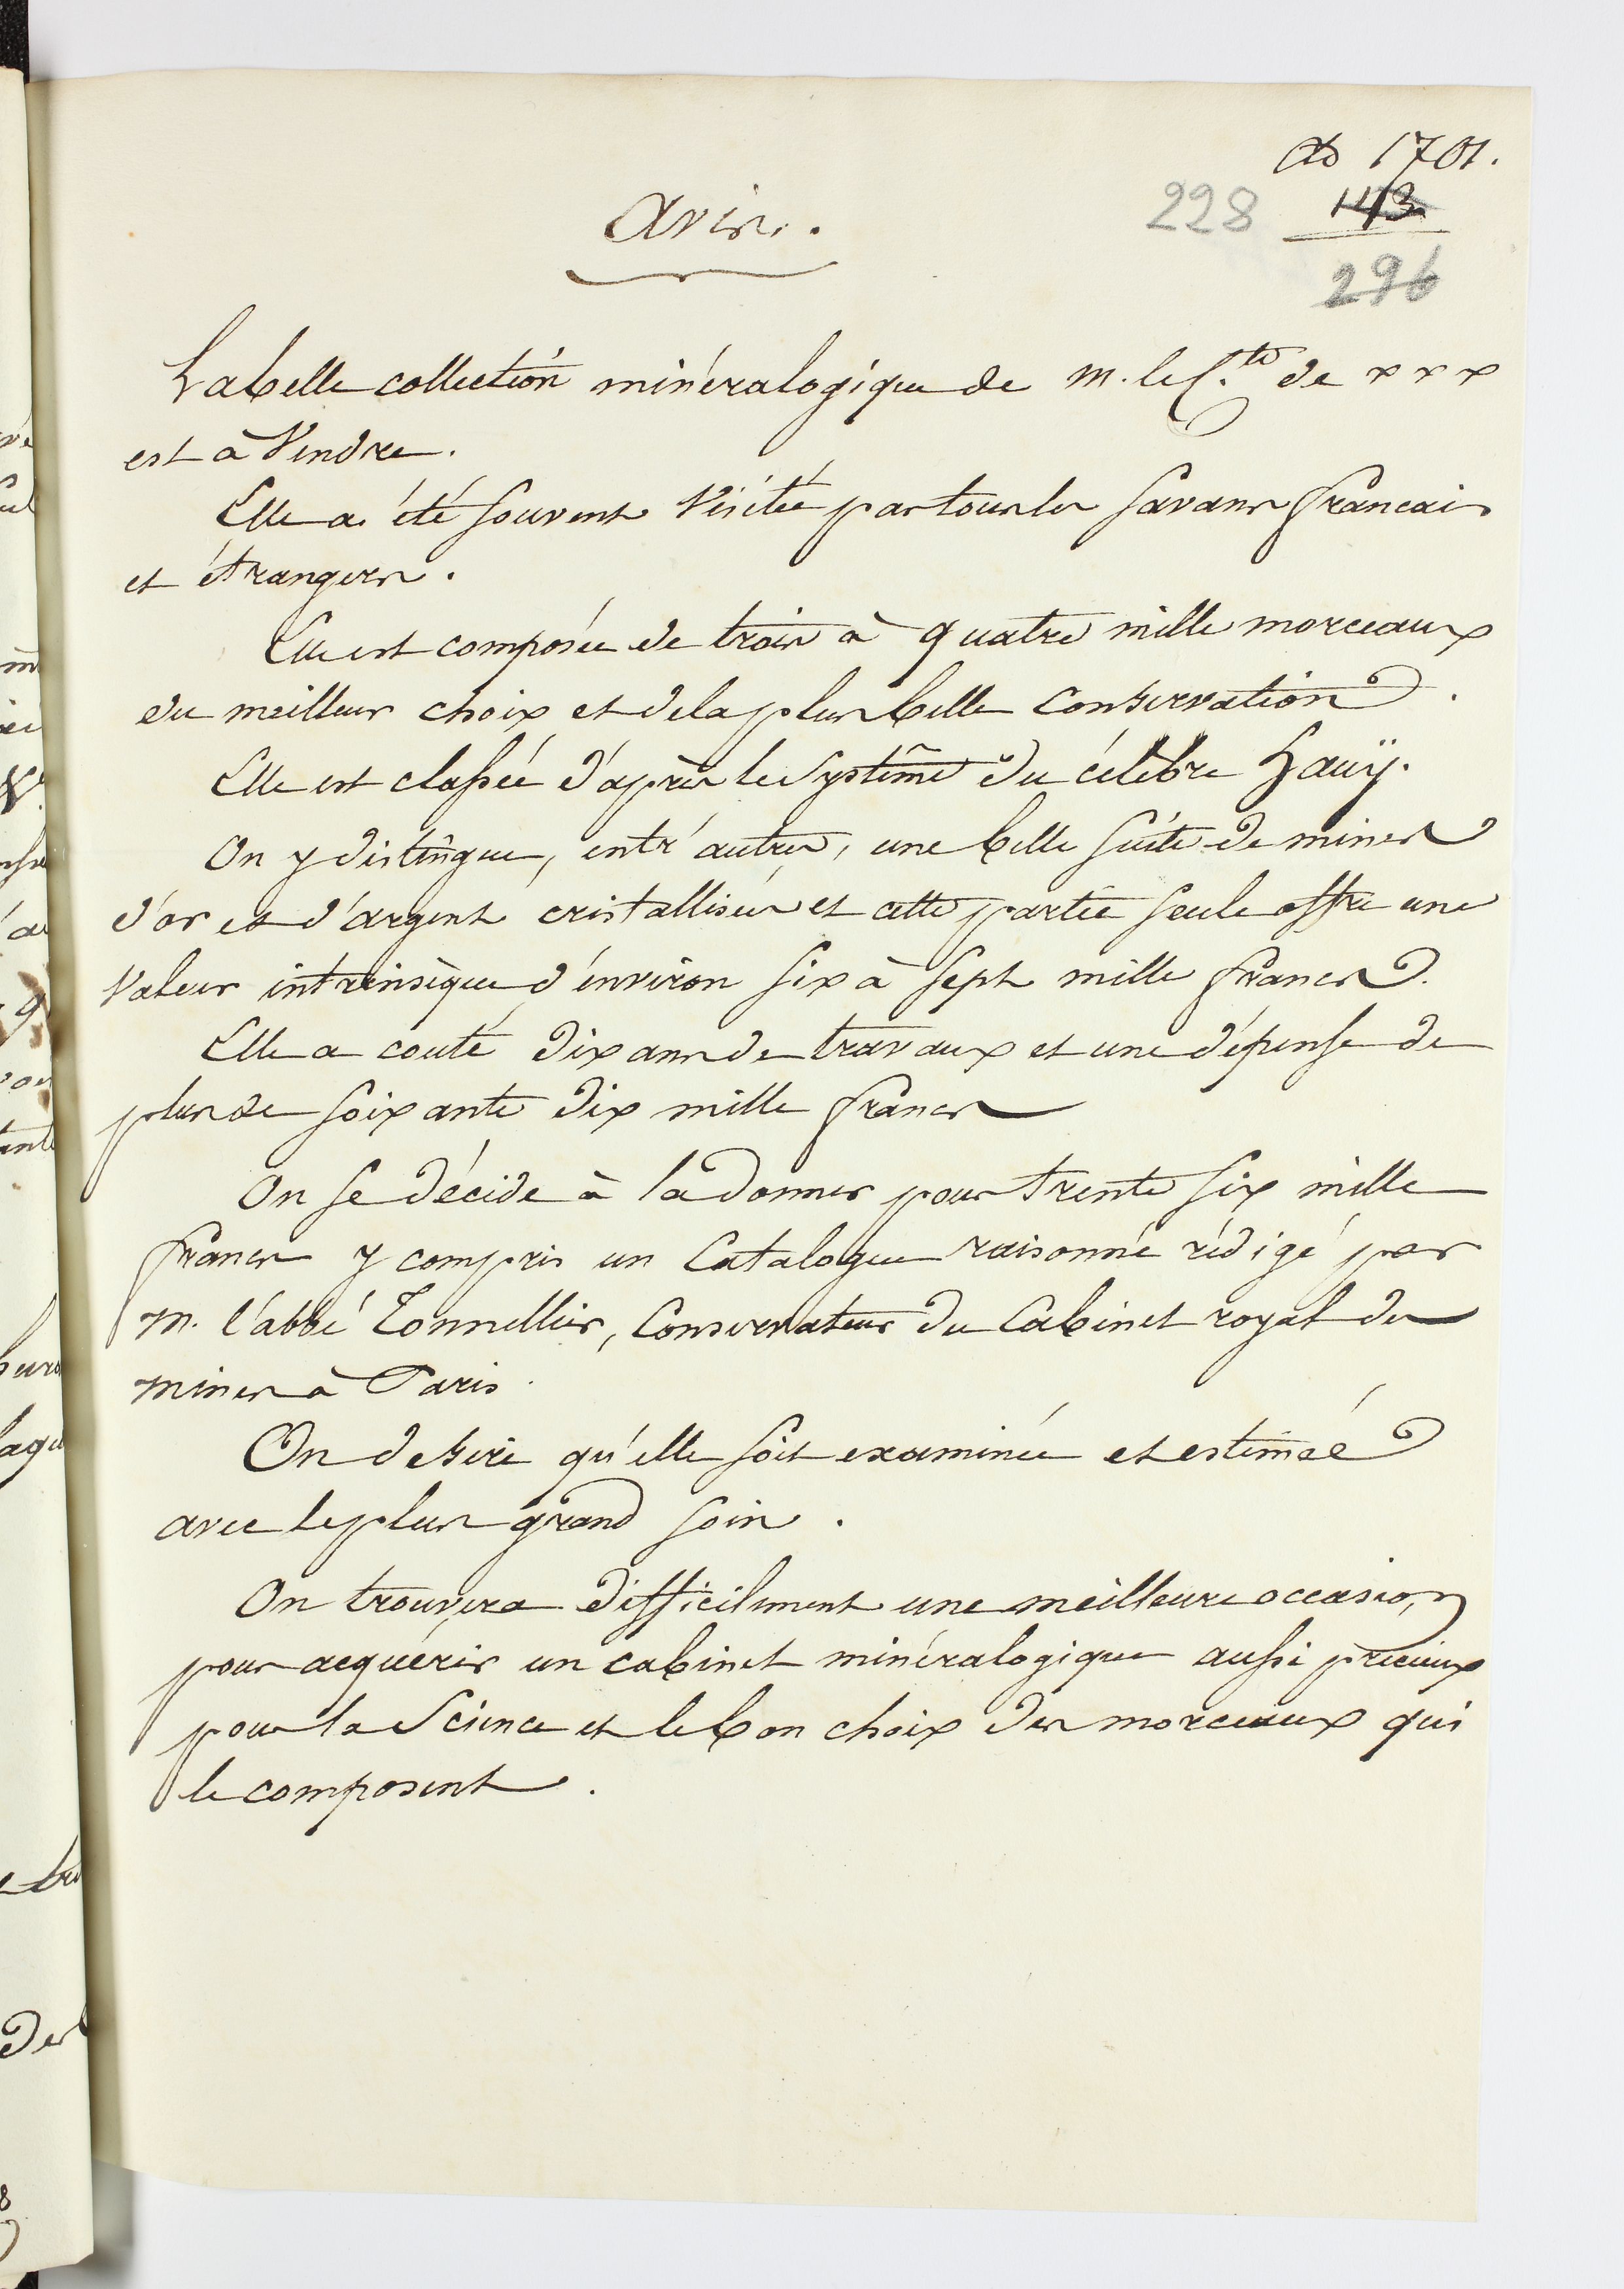 ad 1701.
228 143
296
Avis.
La belle collection minéralogique de M. le C.te de xxx
est à Vendre.
Elle a été souvent Visitée par tous les savans francais
et étrangers.
Elle est composée de trois à quatre mille morceaux
du meilleur choix et de la plus belle conservation.
Elle est classée d'après le Systême du célèbre Haüy.
On y distingue, entr'autres, une belle suite de mines
d'or et d'argent cristallisées et cette partie seule offre une
Valeur intrinsèque d'environ six à sept mille francs.
Elle a couté dix ans de travaux et une dépense de
plus de soixante dix mille francs
On se décide à la donner pour trente six mille
francs y compris un Catalogue raisonné rédigé par
M. l'abbé Tonnellier, Conservateur du Cabinet royal des
mines à Paris.
On desire qu'elle soit examinée et estimée
avec le plus grand soin.
On trouvera difficilement une meilleure occasion
pour acquérir un cabinet minéralogique aussi précieux
pour la Science et le bon choix des morceaux qui
le composent.